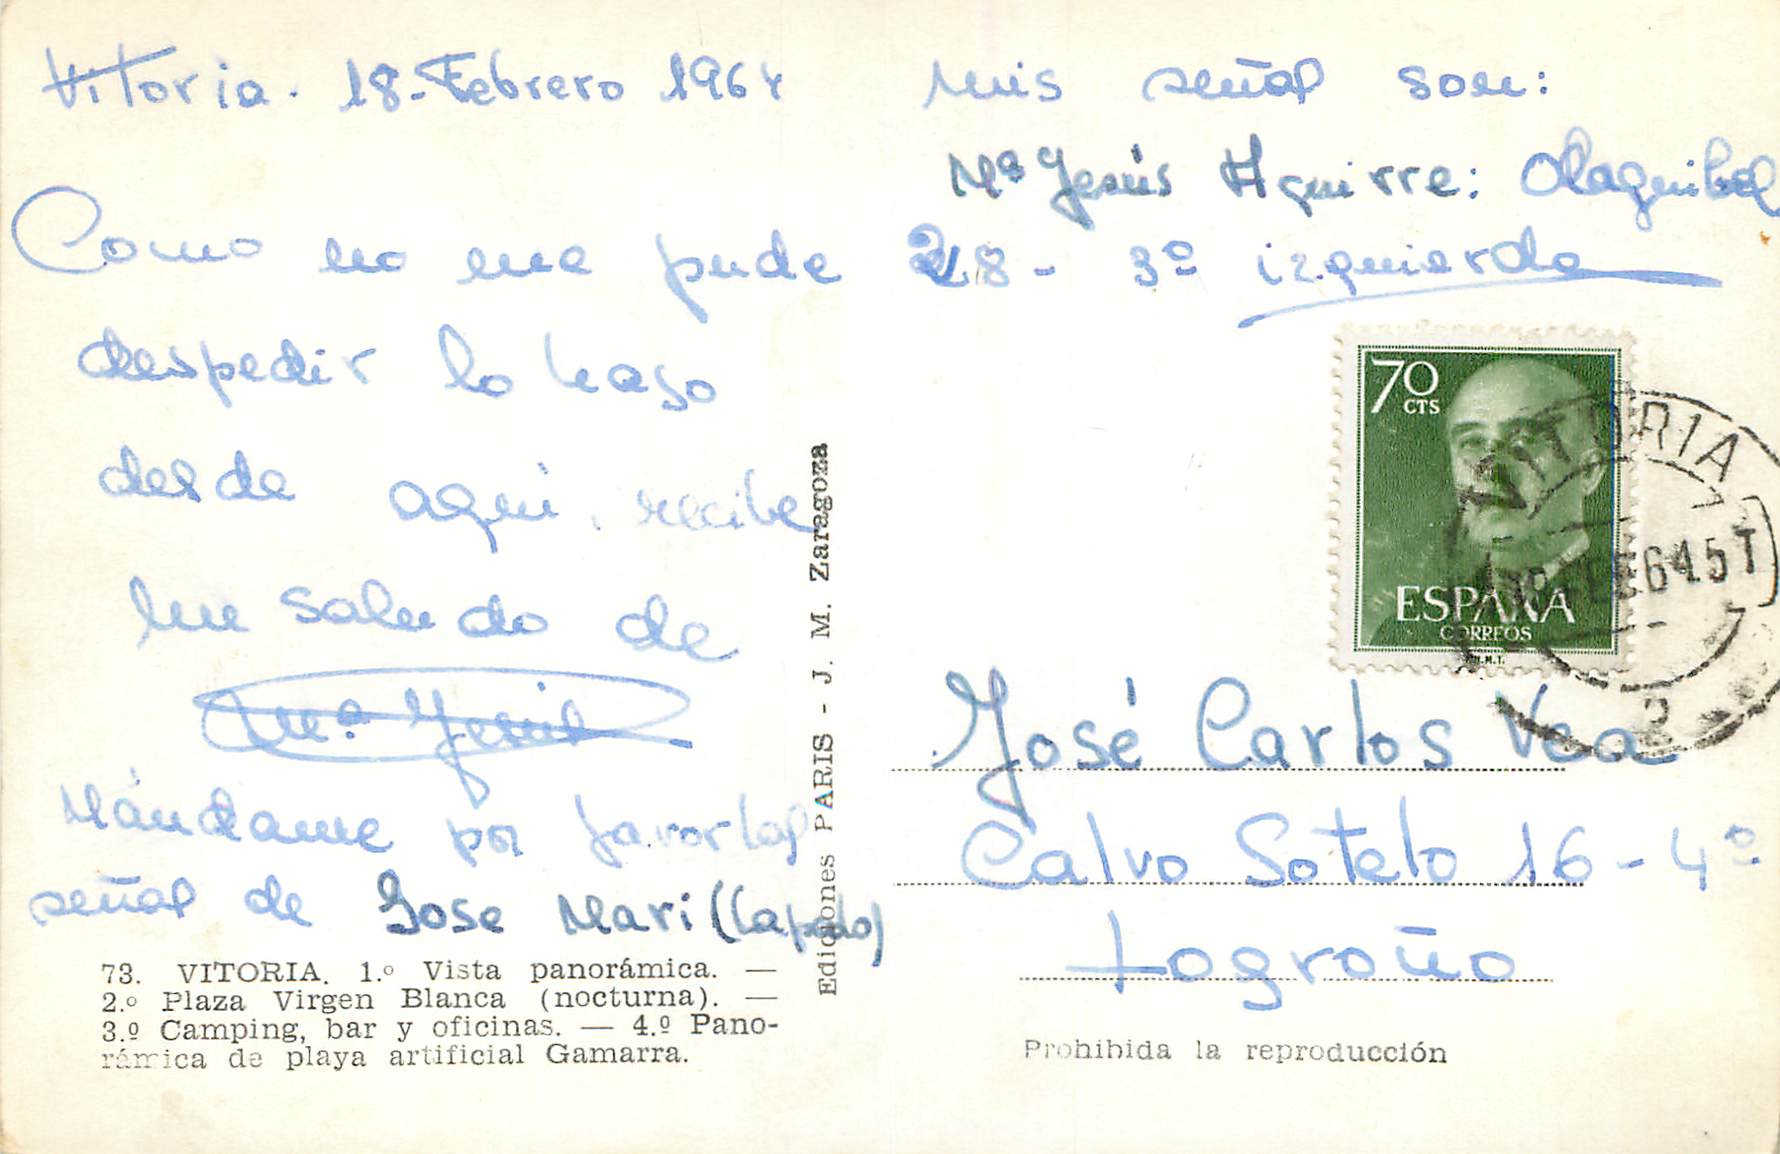 Vitoria. 18-Febrero 1964
Como no me pude
despedir lo hago
desde aqui, recibe
un saludo de
Mª Jesús
Mándame por favor las
señas de Jose Mari (Lapedo)
73. VITORIA. 1.º Vista panorámica. —
2.º Plaza Virgen Blanca (nocturna). —
3.º Camping, bar y oficinas. — 4.º Pano-
rámica de playa artificial Gamarra.
Ediciones PARIS - J. M. Zaragoza
Mis señas son:
Mª Jesús Aguirre: Olaguibel
28 - 3º izquierda
70
CTS
ESPAÑA
CORREOS
VITORIA
José Carlos Vea
Calvo Sotelo 16 - 4º
Logroño
Prohibida la reproducción